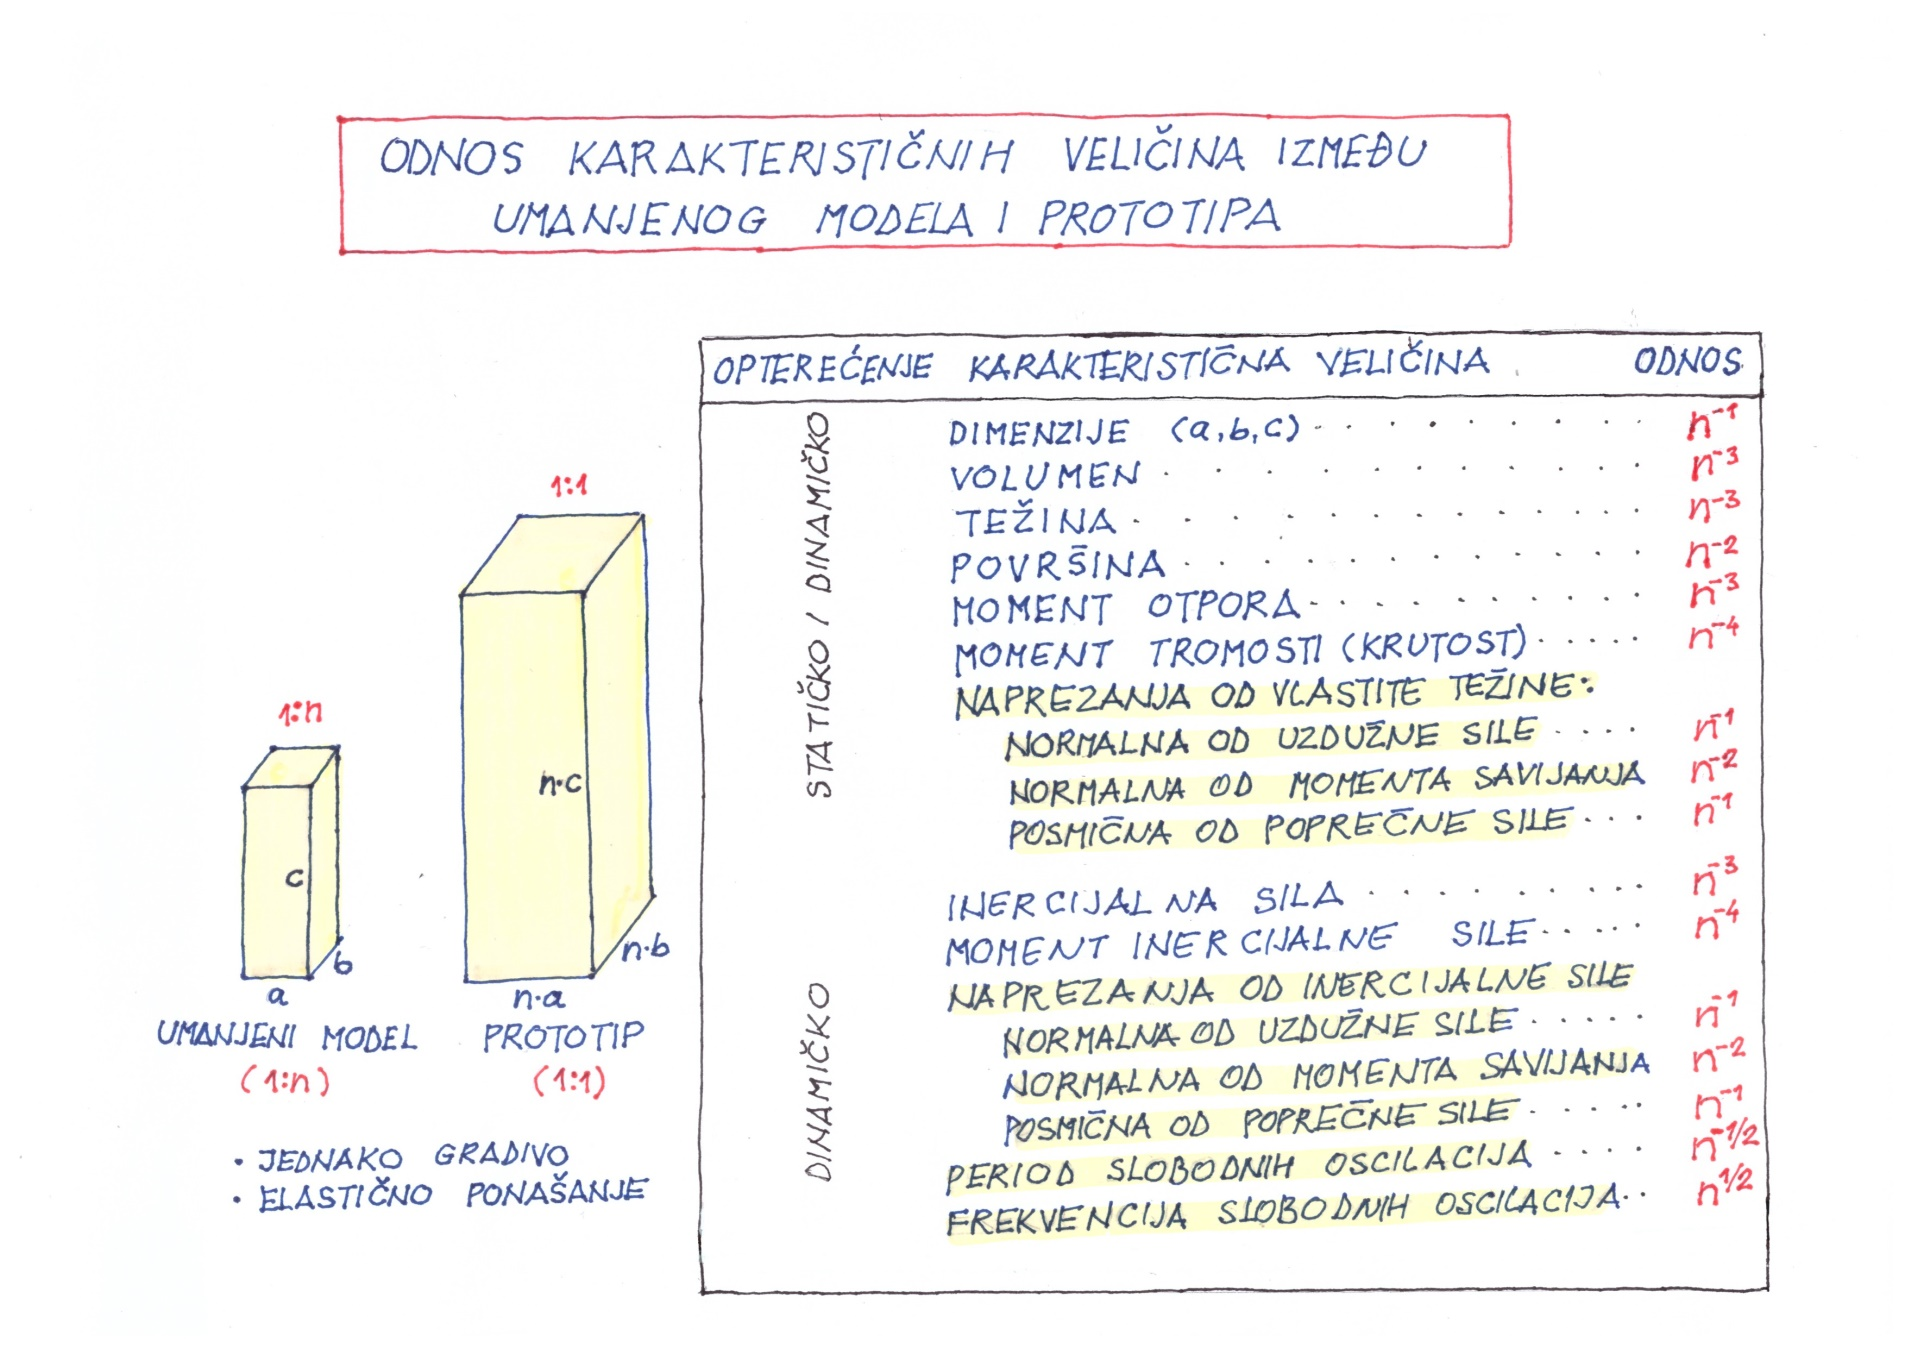 ODNOS KARAKTERISTIČNIH VELIČINA IZMEĐU
UMANJENOG MODELA I PROTOTIPA
1:n
c
b
a
UMANJENI MODEL
(1:n)
1:1
n·c
n·b
n·a
PROTOTIP
(1:1)
• JEDNAKO GRADIVO
• ELASTIČNO PONAŠANJE
OPTEREĆENJE KARAKTERISTIČNA VELIČINA ODNOS
STATIČKO / DINAMIČKO
DIMENZIJE (a,b,c) n⁻¹
VOLUMEN n⁻³
TEŽINA n⁻³
POVRŠINA n⁻²
MOMENT OTPORA n⁻³
MOMENT TROMOSTI (KRUTOST) n⁻⁴
NAPREZANJA OD VLASTITE TEŽINE:
NORMALNA OD UZDUŽNE SILE n⁻¹
NORMALNA OD MOMENTA SAVIJANJA n⁻²
POSMIČNA OD POPREČNE SILE n⁻¹
DINAMIČKO
INERCIJALNA SILA n⁻³
MOMENT INERCIJALNE SILE n⁻⁴
NAPREZANJA OD INERCIJALNE SILE
NORMALNA OD UZDUŽNE SILE n⁻¹
NORMALNA OD MOMENTA SAVIJANJA n⁻²
POSMIČNA OD POPREČNE SILE n⁻¹
PERIOD SLOBODNIH OSCILACIJA n⁻¹/²
FREKVENCIJA SLOBODNIH OSCILACIJA n¹/²